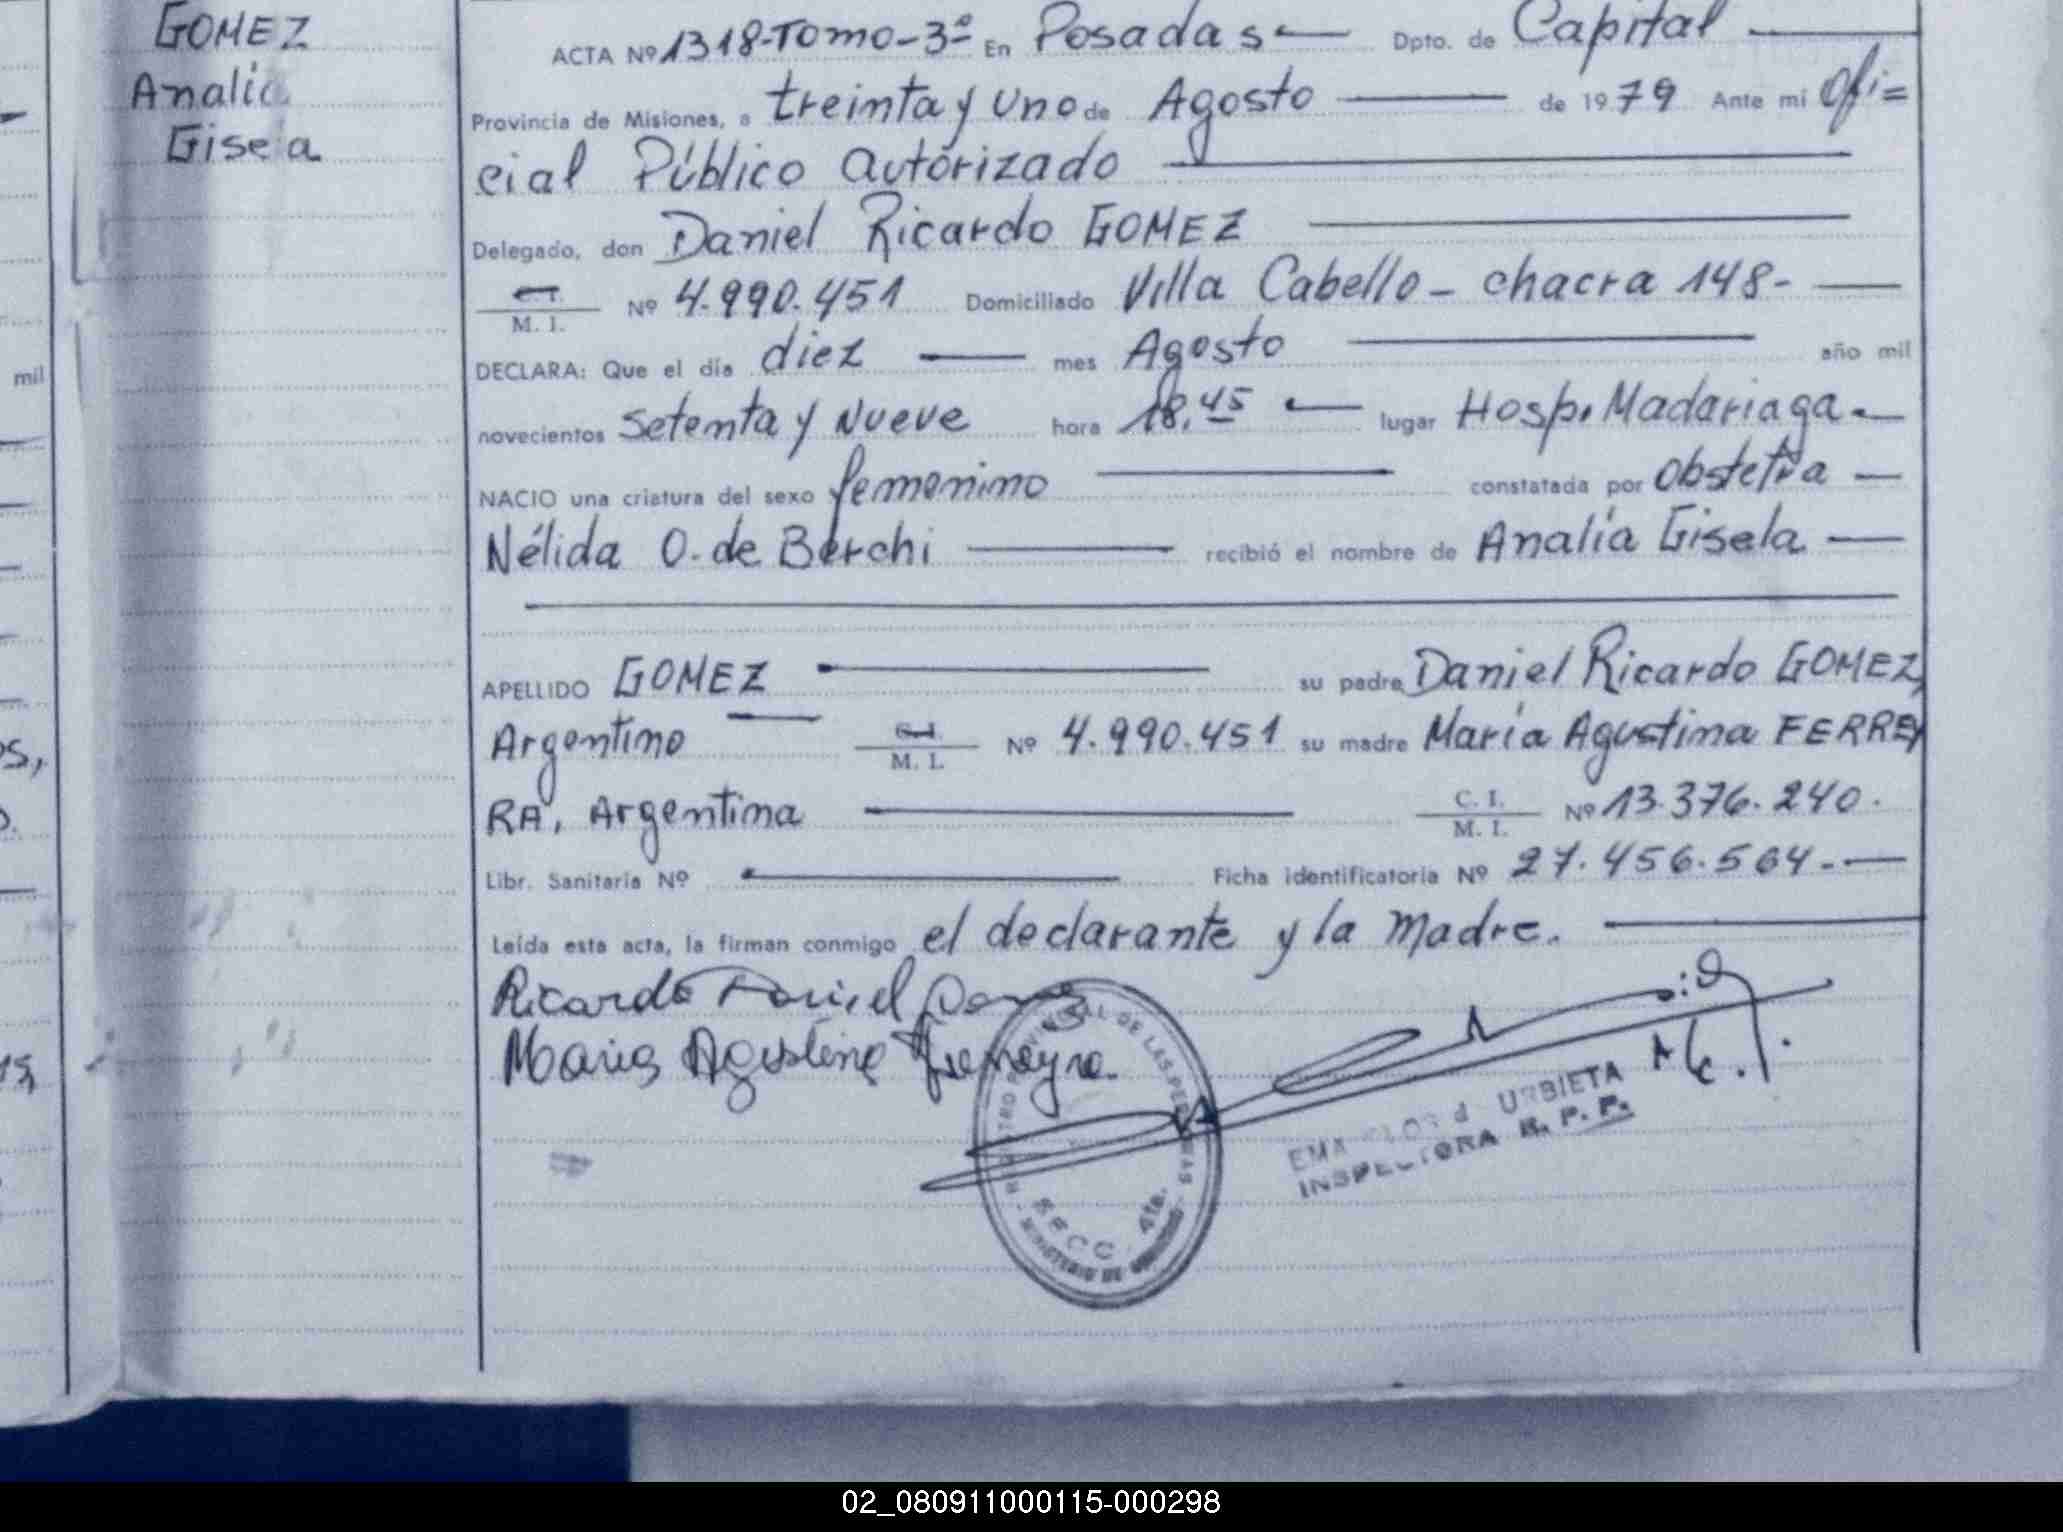 GOMEZ
Analía
Gisela
ACTA Nº 1318-Tomo-3º En Posadas Dpto. de Capital
Provincia de Misiones, a treinta y uno de Agosto de 1979 Ante mi Ofi=
cial Público autorizado
Delegado, don Daniel Ricardo GOMEZ
C.I.
M. I. Nº 4.990.451 Domiciliado Villa Cabello - chacra 148-
DECLARA: Que el día diez mes Agosto año mil
novecientos setenta y nueve hora 18,45 lugar Hosp. Madariaga.
NACIO una criatura del sexo femenino constatada por obstetra
Nélida O. de Berchi recibió el nombre de Analía Gisela
APELLIDO GOMEZ su padre Daniel Ricardo GOMEZ,
Argentino C.I. M. I. Nº 4.990.451 su madre María Agustina FERREY
RA, Argentina C. I. M. I. Nº 13.376.240.
Libr. Sanitaria Nº Ficha identificatoria Nº 27.456.564.-
Leída esta acta, la firman conmigo el declarante y la Madre.
Ricardo Daniel Gomez
Maria Agustina Ferreyra.
REGISTRO PROVINCIAL DE LAS PERSONAS
URBIETA
INSPECTORA R. P. P.
mil
02_080911000115-000298